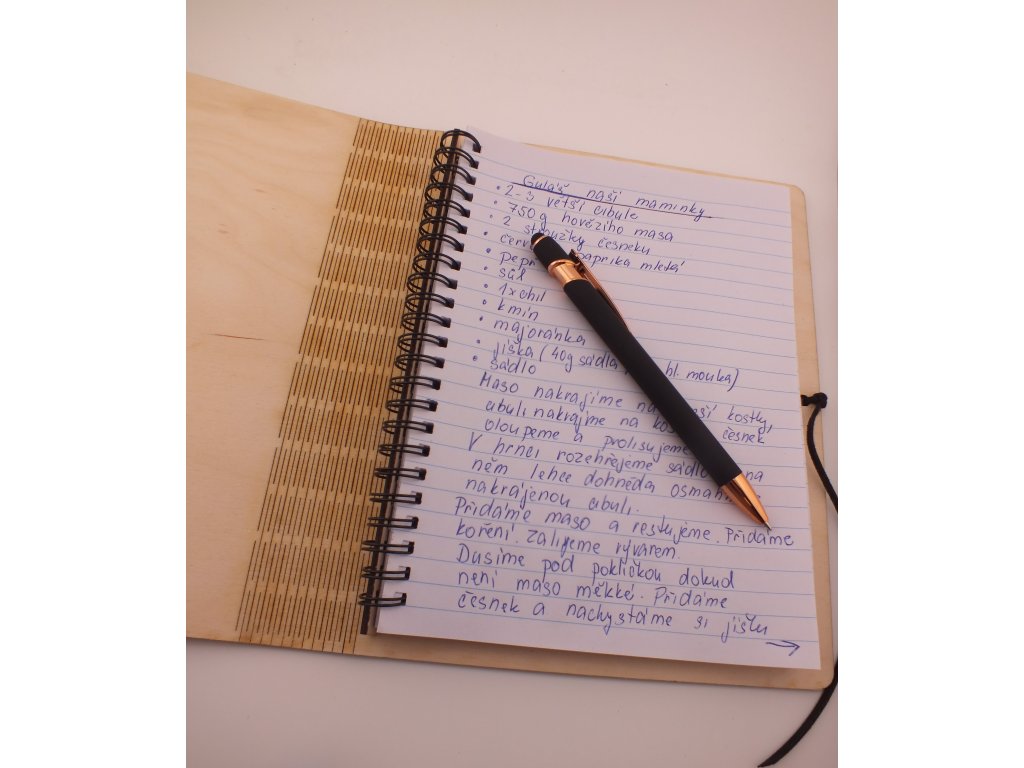 Guláš naší maminky
• 2-3 větší cibule
• 750 g hovězího masa
• 2 stroužky česneku
• paprika mletá
•
• sůl
• 1x chil
• kmín
• majoránka
• jíška (40g sádla hl. mouka)
• sádlo
Maso nakrájíme kostky,
cibuli nakrájme na česnek
oloupeme a prolisujeme
V hrnci rozehřejeme sádlo na
něm lehce dohněda
nakrájenou cibuli.
Přidáme maso a restujeme. Přidáme
koření. Zalijeme vývarem.
Dusíme pod pokličkou dokud
není maso měkké. Přidáme
česnek a nachystáme si jíšku
→